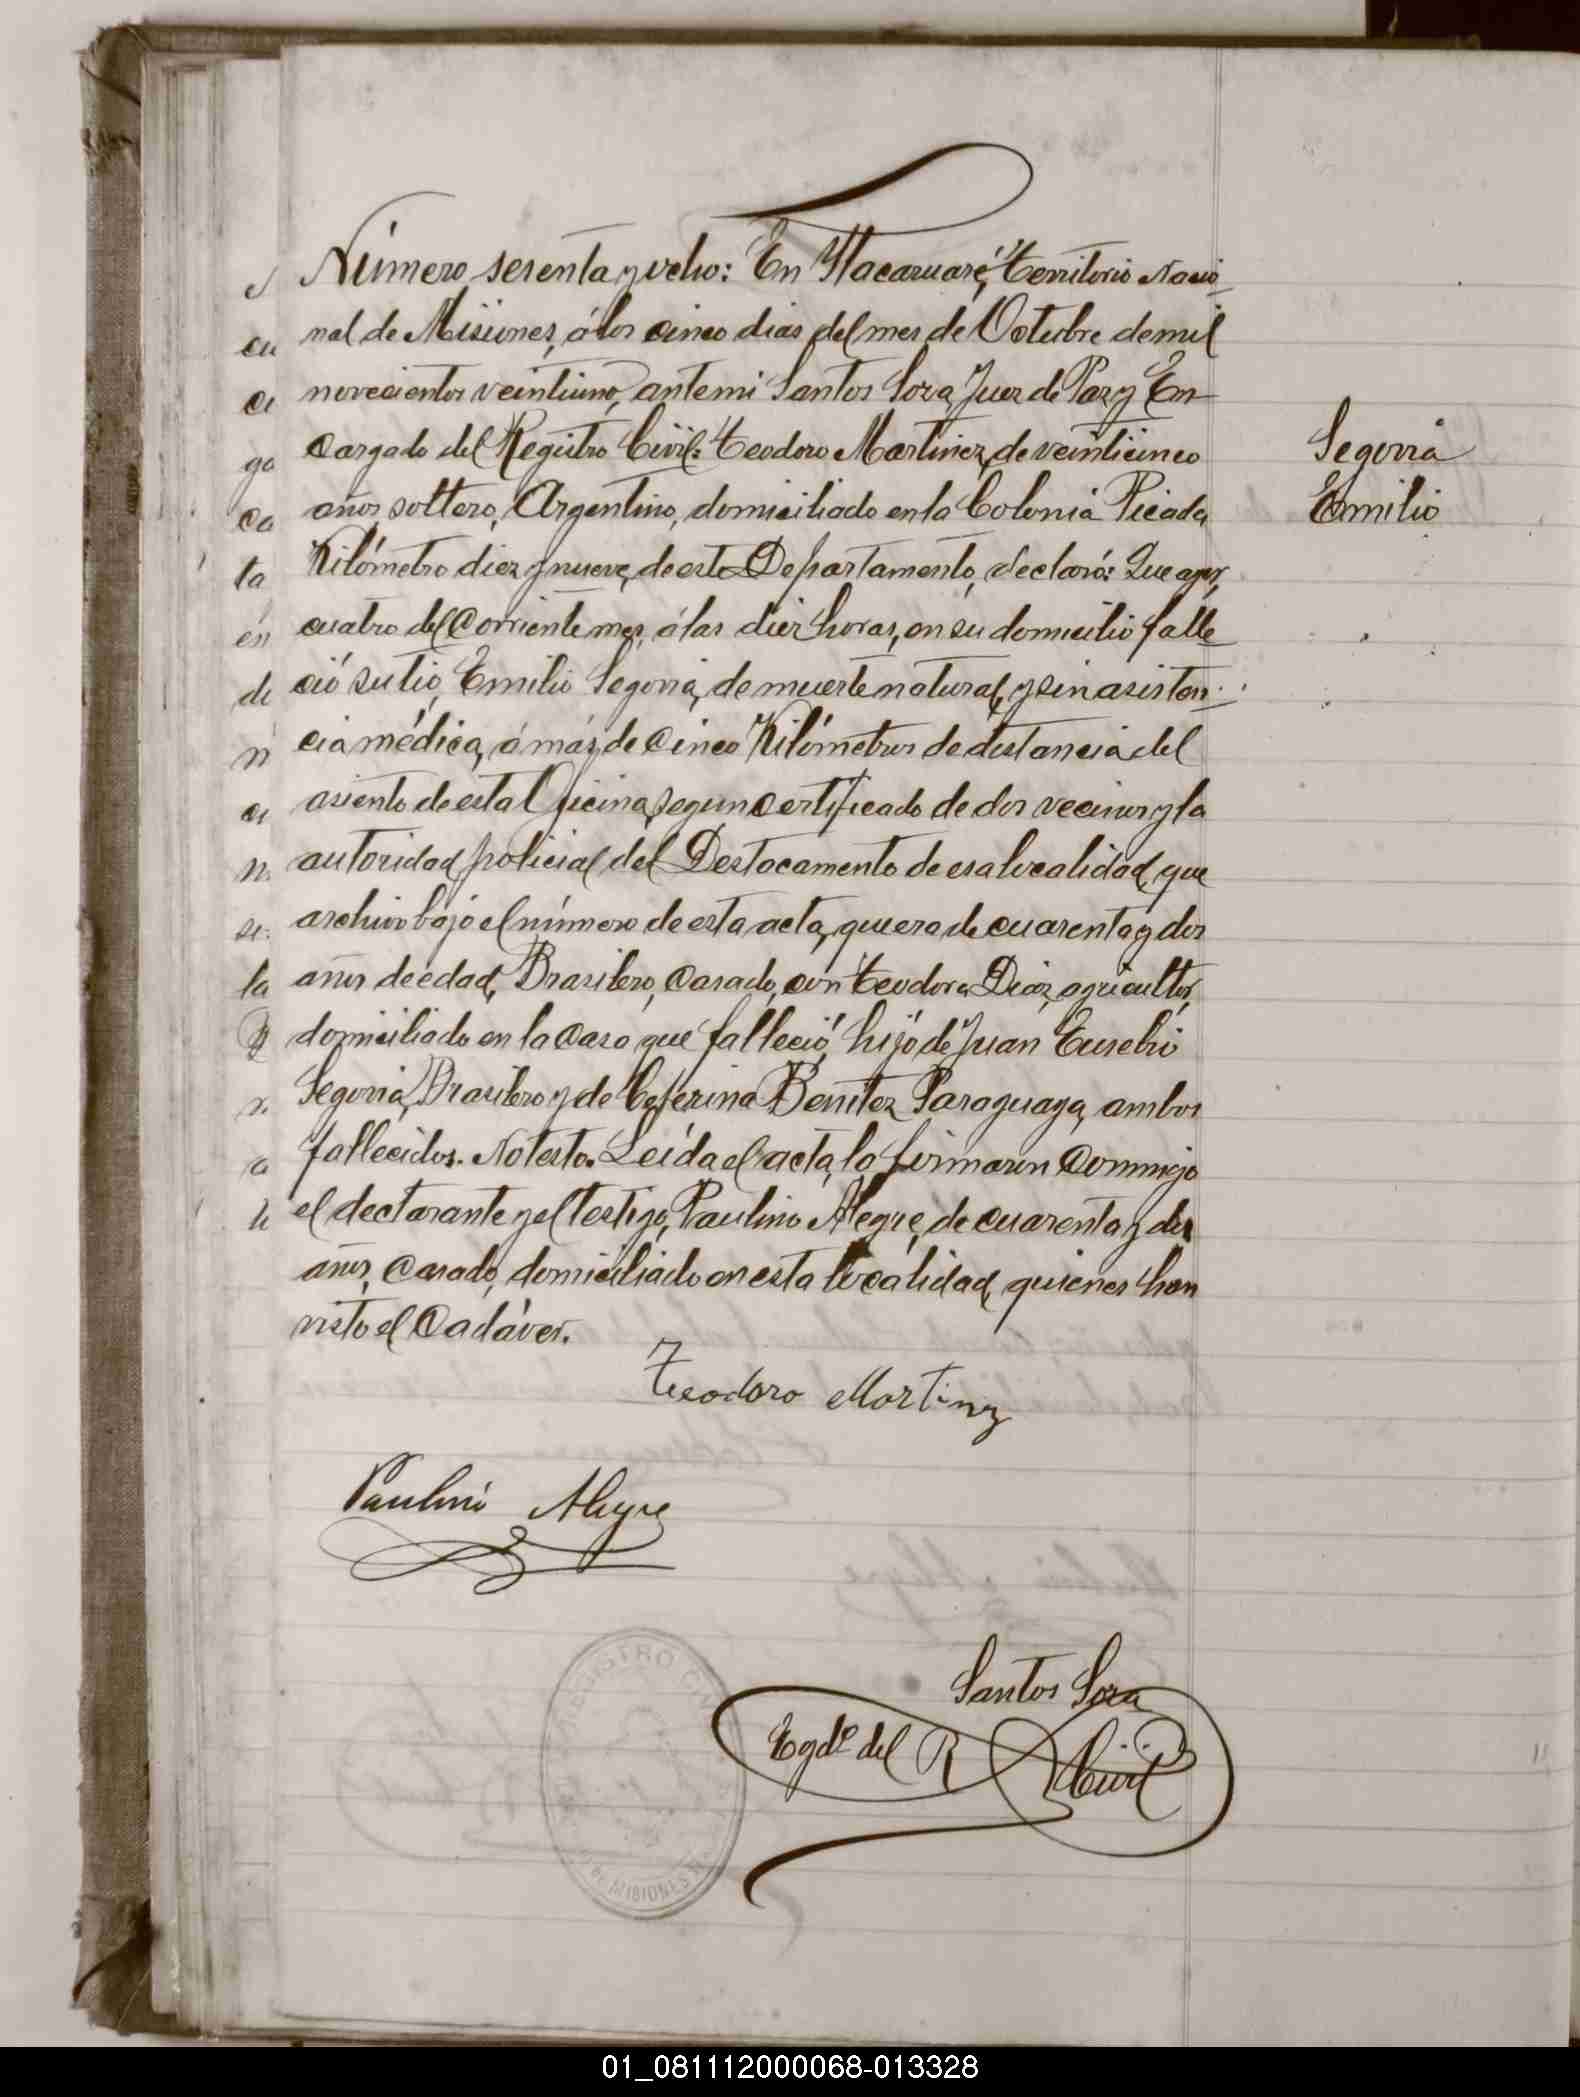 Número sesenta y ocho: En Itacaruaré, Territorio Nacio-
nal de Misiones, á los cinco dias del mes de Octubre de mil
novecientos veintiuno, ante mi Santos Soza, Juez de Paz y En-
cargado del Registro Civil: Teodoro Martinez, de veinticinco
años soltero, Argentino, domiciliado en la Colonia Picada,
Kilómetro diez y nueve, de este Departamento, declaró: Que ayer,
cuatro del corriente mes, á las diez horas, en su domicilio falle-
ció su tio, Emilio Segovia, de muerte natural, y sin asisten-
cia médica, á más de cinco Kilómetros de distancia del
asiento de esta Oficina, segun certificado de dos vecinos y la
autoridad policial del Destacamento de esa localidad, que
archivo bajo el número de esta acta, que era de cuarenta y dos
años de edad, Brasilero, casado, con Teodora Diaz, agricultor,
domiciliado en la casa que falleció, hijo de Juan Eusebio
Segovia, Brasilero y de Ceferina Benitez Paraguaya, ambos
fallecidos. No testo. Leída el acta, la firmaron conmigo
el declarante y el testigo, Paulino Alegre, de cuarenta y dos
años, casado, domiciliado en esta localidad, quienes han
visto el cadáver.
Segovia
Emilio
Teodoro Martinez
Paulino Alegre
Santos Soza
Egdo del R Civil
REGISTRO CIVIL
MISIONES
01_081112000068-013328